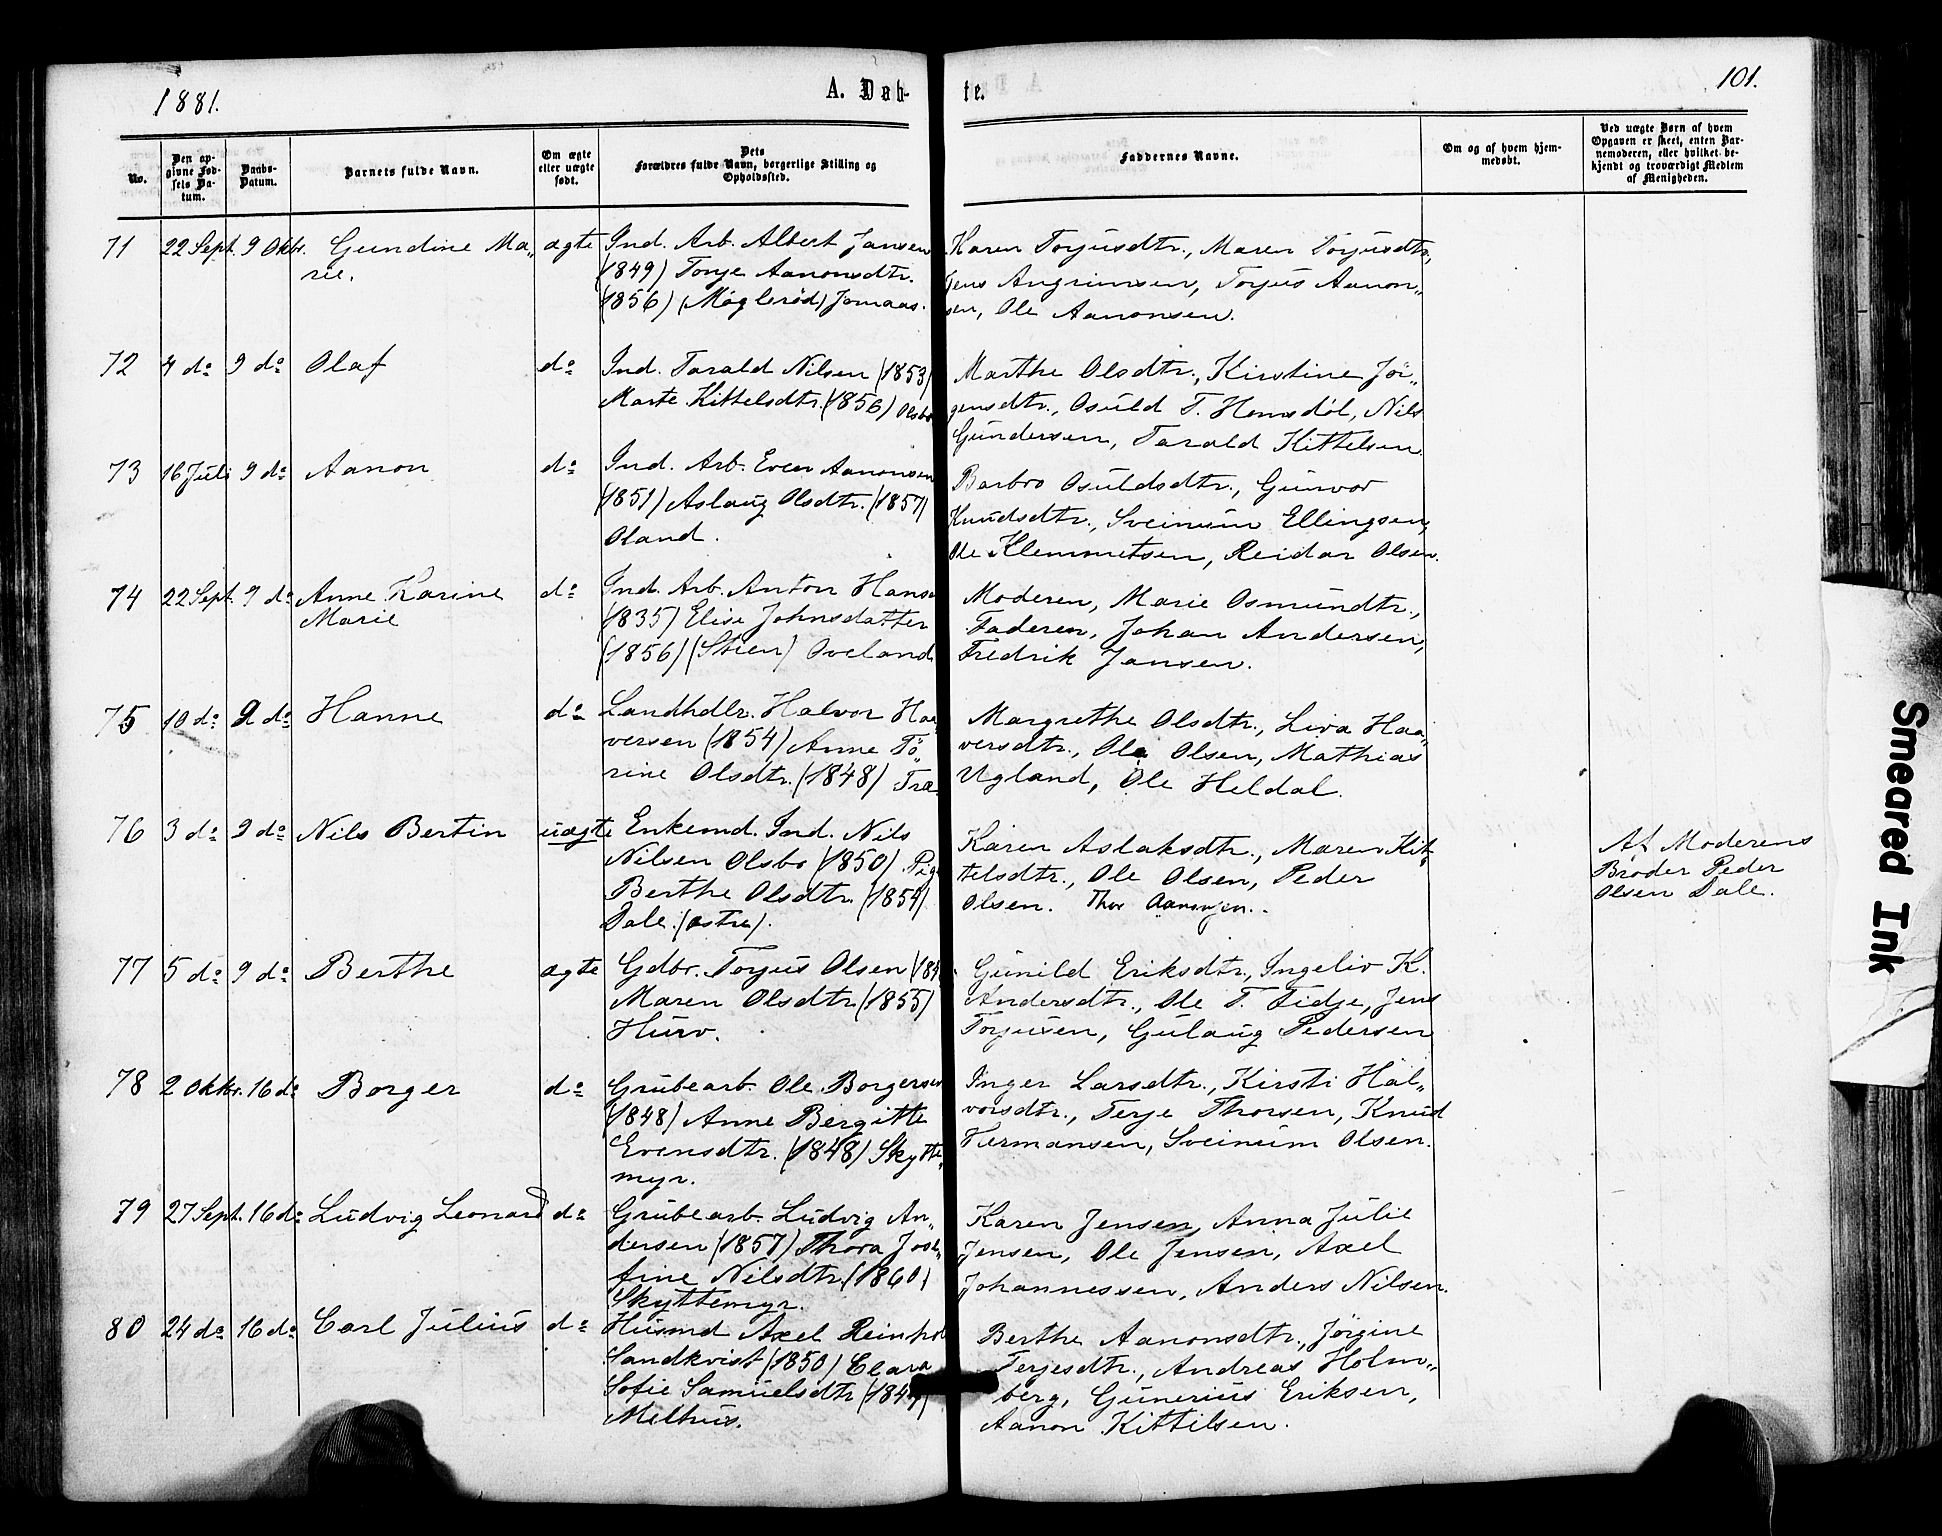 1881.
A. Døb-
te.
101.
No.
Den opgivne Fødsels Datum.
Daabs-Datum.
Barnets fulde Navn.
Om ægte eller uægte født.
Dets Forældres fulde Navn, borgerlige Stilling og Opholdssted.
Faddernes Navne.
Om og af hvem hjemmedøbt.
Ved uægte Børn af hvem Opgaven er skeet, enten Barnemoderen, eller hvilket bekjendt og troværdigt Medlem af Menigheden.
71 22 Sept. 9 Oktbr. Gundine Ma„
rie.
ægte
Ind. Arb. Albert Jansen
(1849) Tonje Aanonsdtr.
(1856) (Møglerød) Jomaas.
Karen Torjusdtr., Maren Torjusdtr.,
Jens Angrimsen, Torjus Aanon„
sen, Ole Aanonsen.
72 4 do 9 do Olaf do
Ind. Tarald Nilsen (1853)
Marte Kittelsdtr. (1856) Olsbo
Marthe Olsdtr., Kirstine Jör„
gensdtr., Osuld T. Homsdöl, Nils
Gundersen, Tarald Kittelsen
73 16 Juli 9 do Aanon do
Ind. Arb. Even Aanonsen
(1851) Aslaug Olsdtr. (1857)
Oland.
Barbro Osuldsdtr., Gunvor
Knudsdtr., Sveinum Ellingsen,
Ole Klemmetsen, Reidar Olsen.
74 22 Sept. 9 do Anne Karine
Marie
do
Ind. Arb. Anton Hans
(1835) Elise Johnsdatter
(1856) (Stien) Oveland
Moderen, Marie Osmundtr.,
Faderen, Johan Andersen,
Fredrik Jansen.
75 10 do 9 do Hanne do
Landhdlr. Halvor Ha
versen (1854) Anne Tö„
rine Olsdtr. (1848) Træ
Margrethe Olsdtr., Liva Haa„
versdtr., Ole Olsen, Mathias
Ugland, Ole Heldal.
76 3 do 9 do Nils Bertin uægte
Enkemd. Ind. Nils
Nilsen Olsbo (1850) Pige
Berthe Olsdtr. (1854)
Dale (østre).
Karen Aslaksdtr., Maren Kit„
telsdtr., Ole Olsen, Peder
Olsen. Thor Aanonsen.
Af Moderens
Broder Peder
Olsen Dale.
77 5 do 9 do Berthe ægte
Gdbr. Torjus Olsen (184
Maren Olsdtr. (1855)
Hurv.
Gunild Eriksdtr., Ingeliv K.
Andersdtr., Ole T. Tidje, Jens
Torjusen, Gulaug Pedersen
78 2 Oktbr. 16 do Borger do
Grubearb. Ole Borgersen
(1848) Anne Bergitte
Evensdtr. (1848) Skytte„
myr.
Inger Larsdtr., Kirsti Hal„
vorsdtr., Terje Thorsen, Knud
Termansen, Sveinum Olsen.
79 27 Sept. 16 do Ludvig Leonard do
Grubearb. Ludvig An„
dersen (1857) Thora Jose„
fine Nilsdtr. (1860)
Skyttemyr.
Karen Jensen, Anna Julie
Jensen, Ole Jensen, Axel
Johannessen, Anders Nilsen.
80 24 do 16 do Carl Julius do
Husmd Axel Reinhol
Sandkvist (1850) Clara
Sofie Samuelsdtr (184
Melhus.
Berthe Aanonsdtr., Jörgine
Terjesdtr., Andreas Holm„
berg, Gunerius Eriksen,
Aanon Kittilsen.
Smeared Ink